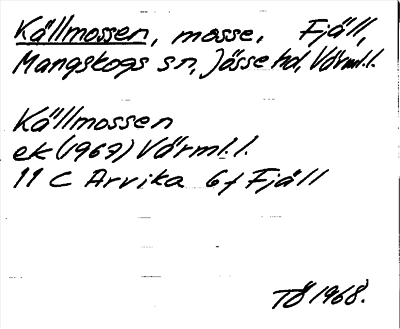 Källmossen, mosse, Fjäll,
Mangskogs sn, Jösse hd, Värml.l.
Källmossen
ek (1969) Värml.l.
11 C Arvika 6f Fjäll
TÖ 1968.